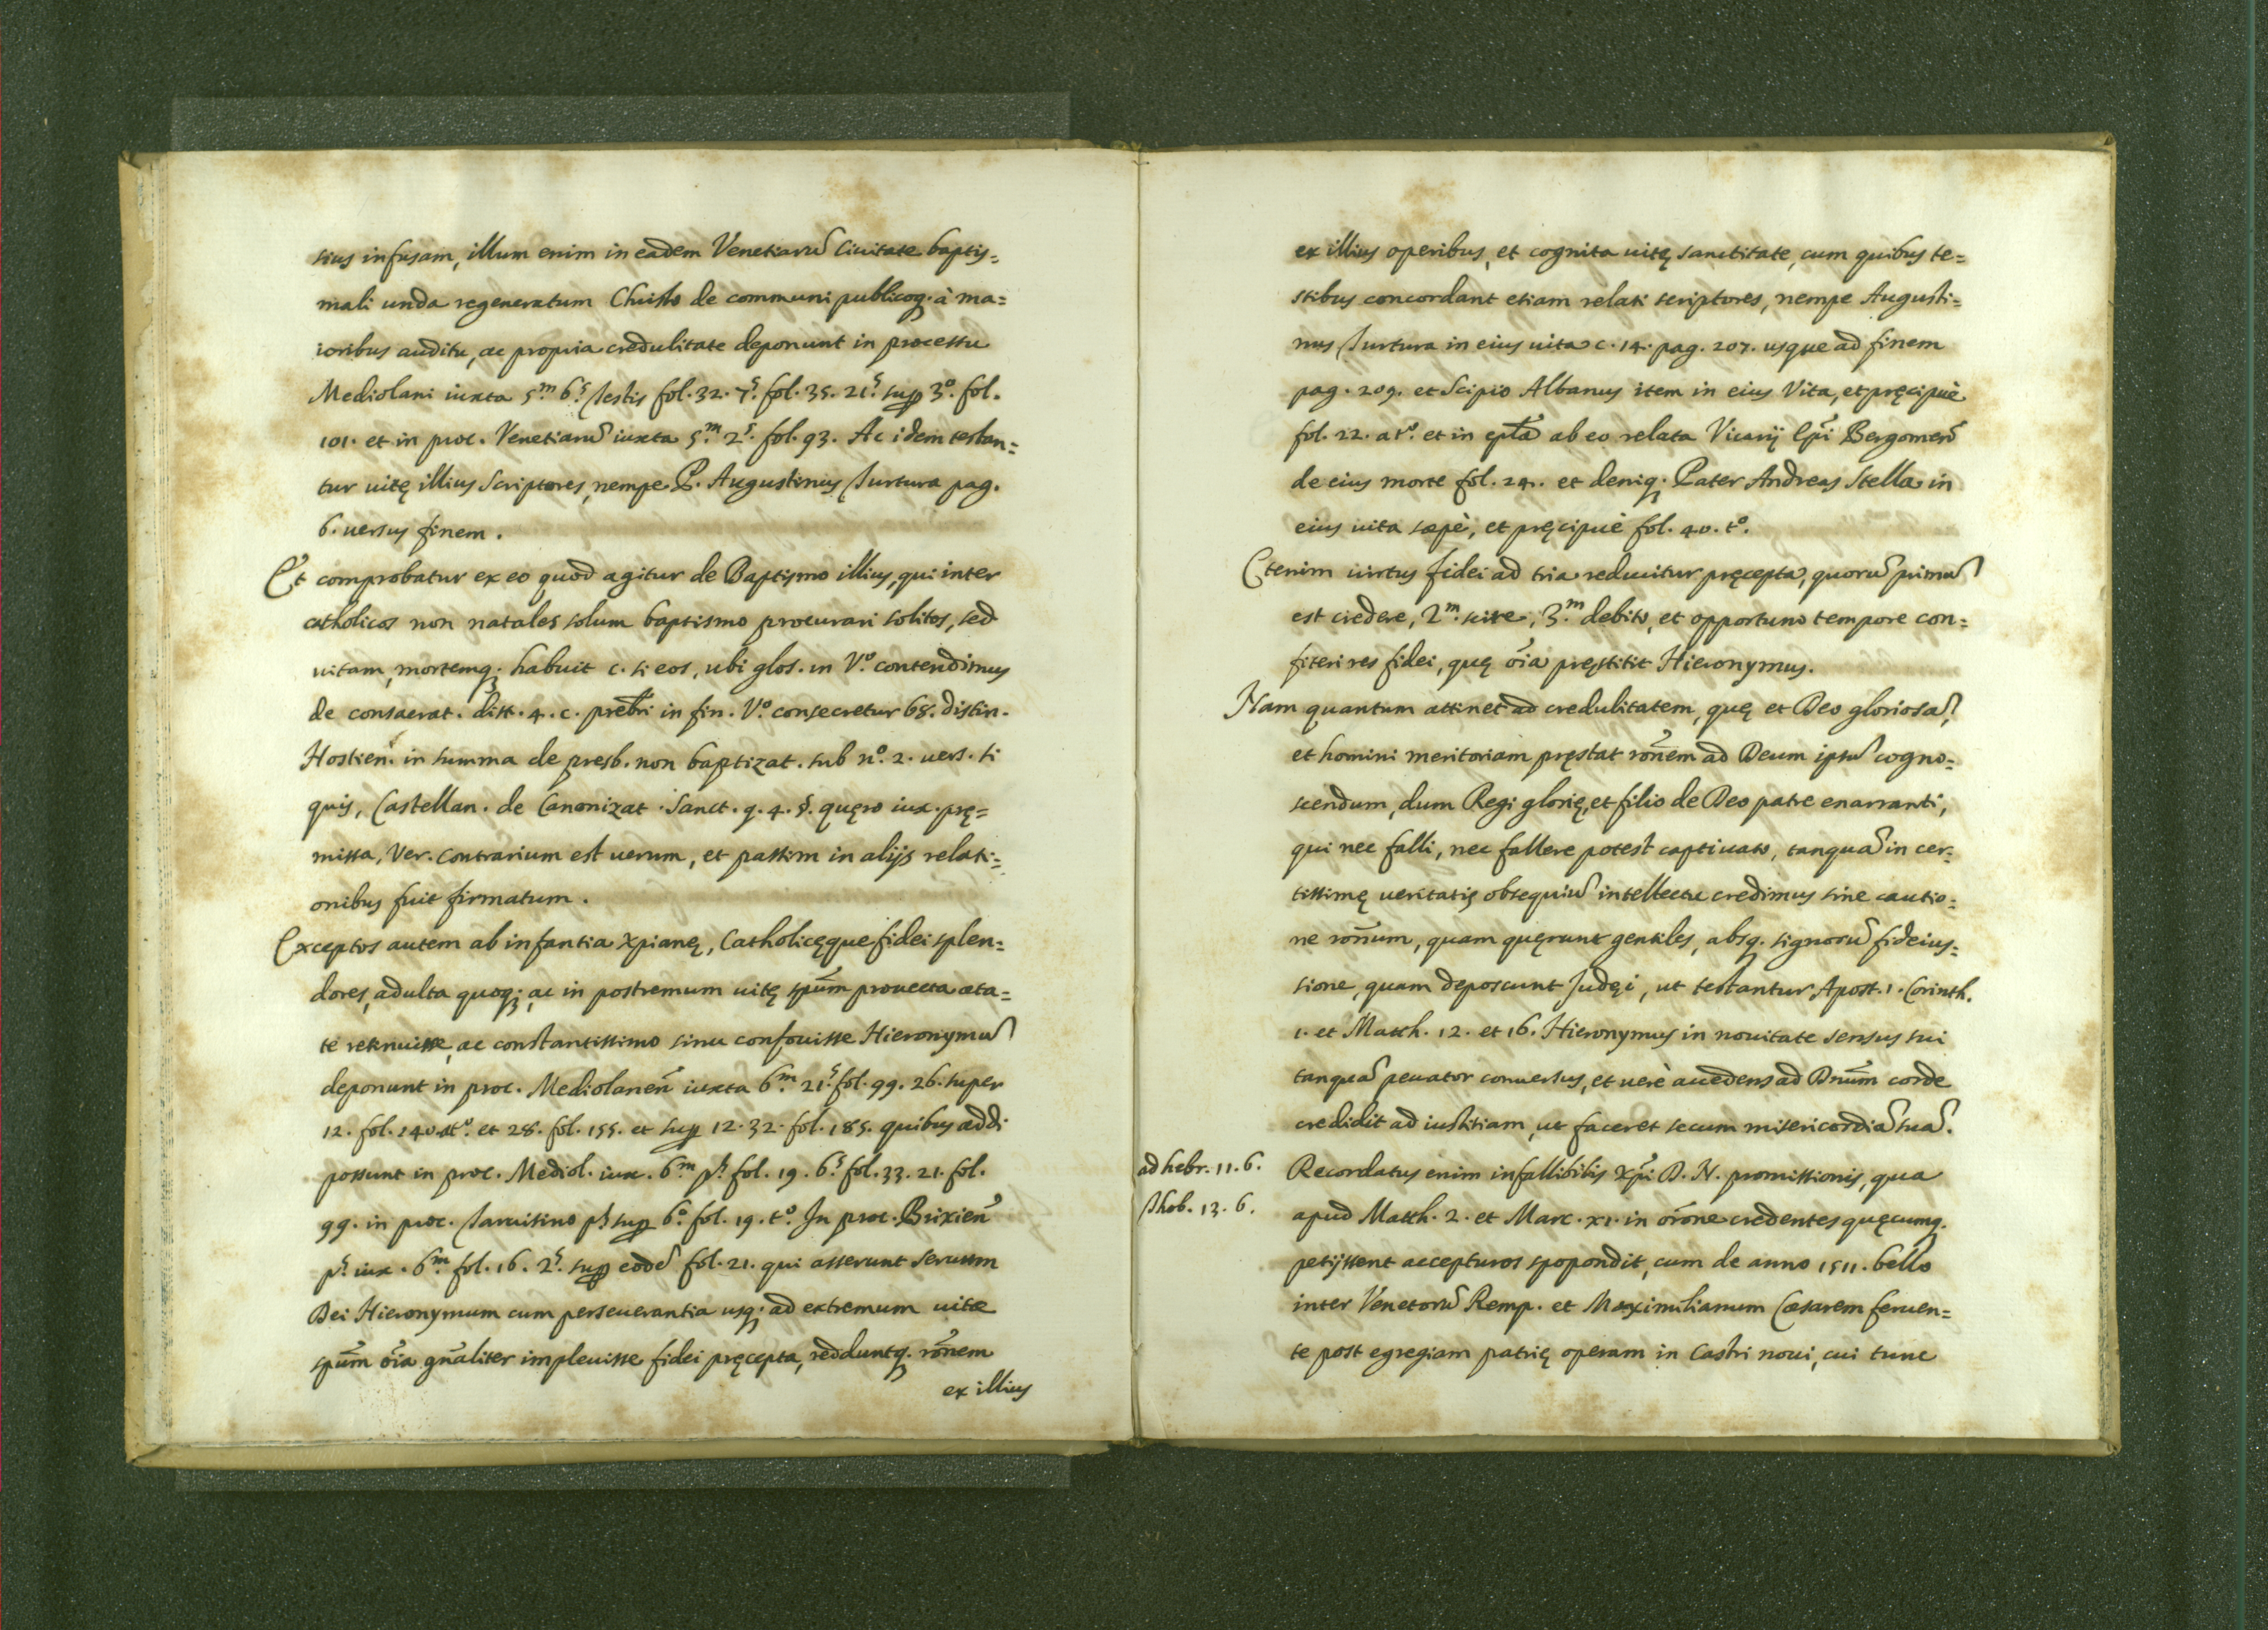 tius infusam, illum enim in eadem Venetiarũ Ciuitate baptis=
mali unda regeneratum Christo de communi publicoq. à ma=
ioribus auditu, ac propria credulitate deponunt in processu
Mediolani iuxta 5.m 6.s Testis fol. 32. 7.s fol. 35. 21.s sup 3.o fol.
101. et in proc. Venetiarũ iuxta 5.m 2.s fol. 93. Ac idem testan=
tur uitę illius Scriptores, nempe P. Augustinus Turtura pag.
6. uersus finem.
Et comprobatur ex eo quod agitur de Baptismo illius, qui inter
catholicos non natales solum baptismo procurari solitos, sed
uitam, mortemq. habuit c. si eos, ubi glos. in V.o contendimus
de consecrat. dist. 4. c. presbri in fin. V.o consecretur 68. distin.
Hostien. in summa de presb. non baptizat. sub n.o 2. uers. si
quis, Castellan. de Canonizat. Sanct. q. 4. §. quęro iux. prę=
missa, Ver. contrarium est uerum, et passim in alijs relati=
onibus fuit firmatum.
Exceptos autem ab infantia Xpianę, Catholicęque fidei splen=
dores, adulta quoq; ac in postremum uitę spũm prouecta æta=
te retinuisse, ac constantissimo sinu confouisse Hieronymũ
deponunt in proc. Mediolaneñ iuxta 6.m 21.s fol. 99. 26. super
12. fol. 140. at.o et 28. fol. 155. et sup 12. 32. fol. 185. quibus addi
possunt in proc. Mediol. iux. 6.m p.s fol. 19. 6.s fol. 33. 21. fol.
99. in proc. Taruisino p.s sup 6.o fol. 19. t.o In proc. Brixieñ
p.s iux. 6.m fol. 16. 2.s sup eodẽ fol. 21. qui asserunt seruum
Dei Hieronymum cum perseuerantia usq; ad extremum uitæ
spũm õia gñaliter impleuisse fidei pręcepta, redduntq. rõnem
ex illius
ex illius operibus, et cognita uitę sanctitate, cum quibus te=
stibus concordant etiam relati scriptores, nempe Augusti=
nus Turtura in eius uita c. 14. pag. 207. usque ad finem
pag. 209. et Scipio Albanus item in eius Vita, et pręcipuè
fol. 22. at.o et in epła ab eo relata Vicarij Epĩ Bergomeñ
de eius morte fol. 24. et deniq. Pater Andreas Stella in
eius uita sæpè, et pręcipuè fol. 40. t.o
Etenim uirtus fidei ad tria reducitur pręcepta, quorũ primũ
est credere, 2.m scire, 3.m debito, et opportuno tempore con=
fiteri res fidei, quę õia pręstitit Hieronymus.
Nam quantum attinet ad credulitatem, quę et Deo gloriosã,
et homini meritoriam pręstat rõnem ad Deum ipsũ cogno=
scendum, dum Regi glorię, et filio de Deo patre enarranti,
qui nec falli, nec fallere potest captiuato, tanquã in cer=
tissimę ueritatis obsequiũ intellectu credimus sine cautio=
ne rõnum, quam quęrunt gentiles, absq. signorũ fideius=
sione, quam deposcunt Judęi, ut testantur Apost. 1. Corinth.
1. et Matth. 12. et 16. Hieronymus in nouitate sensus sui
tanquã peccator conuersus, et uerè accedens ad Dnũm corde
credidit ad iustitiam, ut faceret secum misericordiã suã.
ad hebr. 11. 6.
Thob. 13. 6.
Recordatus enim infallibilis Xpĩ D. N. promissionis, qua
apud Matth. 2. et Marc. xi. in orõne credentes quęcumq.
petijssent accepturos spopondit, cum de anno 1511. bello
inter Venetorũ Remp. et Maximilianum Cæsarem feruen=
te post egregiam patrię operam in Castri noui, cui tunc